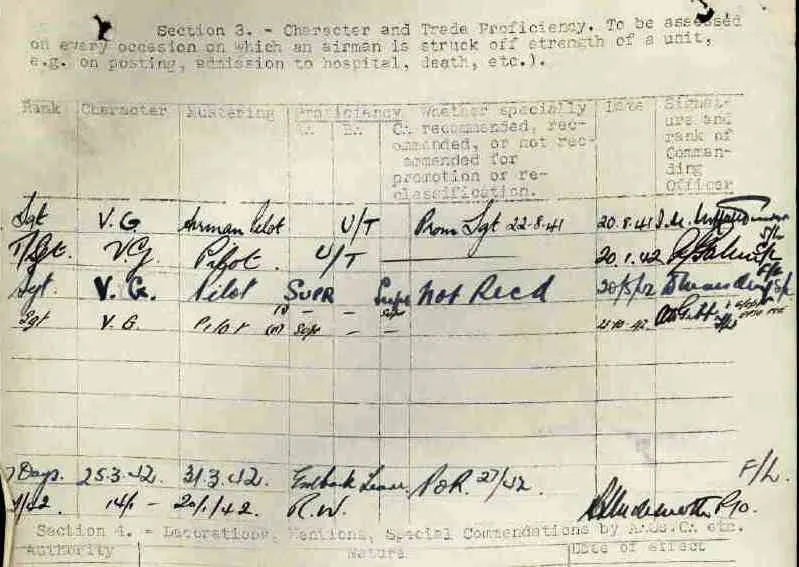 Section 3. - Character and Trade Proficiency. To be assessed
on every occasion on which an airman is struck off strength of a unit,
e.g. on posting, admission to hospital, death, etc.).
Rank Character Mustering Proficiency Whether specially Date Signat-
A. B. C. recommended, rec- ure and
ommended, or not rec- rank of
ommended for Comman-
promotion or re- ding
classification. Officer
Sgt V.G Airman Pilot U/T Prom Sgt 22-8-41 20.8.41 S/L
T/Sgt. VG. Pilot. U/T 20.1.42
Sgt. V.G. Pilot SUPR Supr Not Recd 20/5/42
Sgt V.G. Pilot Supr - -
7 Days. 25.3.42. 31.3.42. Embark Leave. P.O.R. 27/42. F/L.
14/1 - 20/1/42. R.W. P/O.
Section 4. - Decorations, Mentions, Special Commendations by A.Os.C. etc.
Authority Nature Date of effect